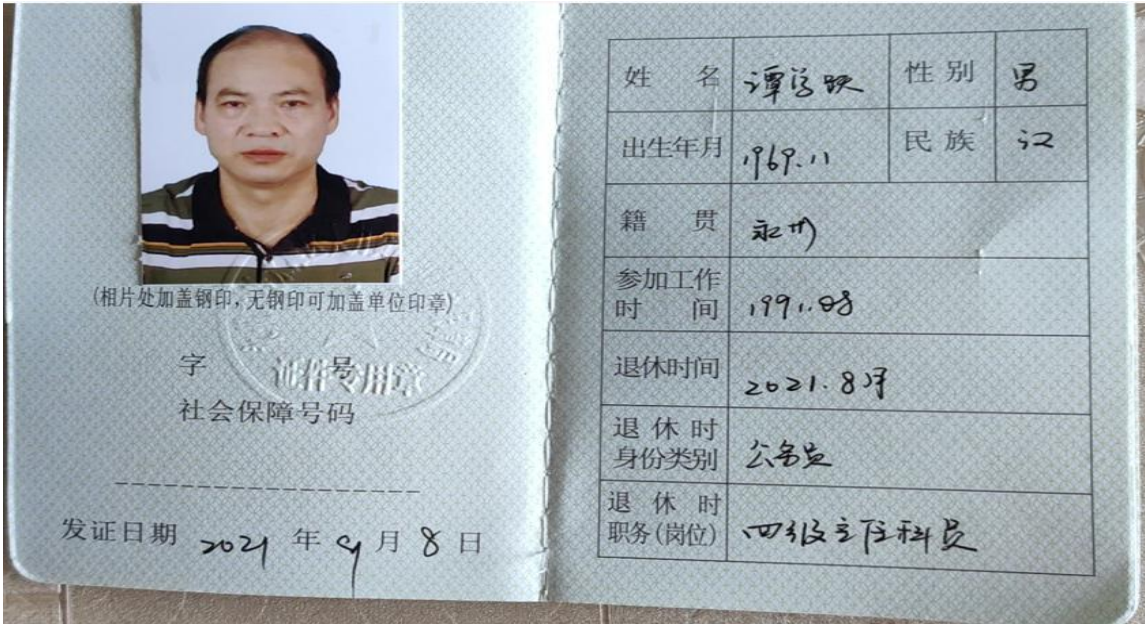 (相片处加盖钢印，无钢印可加盖单位印章)
证件专用章
字 号
社会保障号码
发证日期 2021 年 9 月 8 日
姓 名 谭 跃 性 别 男
出生年月 1969.11 民 族 汉
籍 贯 永州
参加工作
时 间 1991.08
退休时间 2021.8月
退 休 时
身份类别 公务员
退 休 时
职务(岗位) 四级主任科员